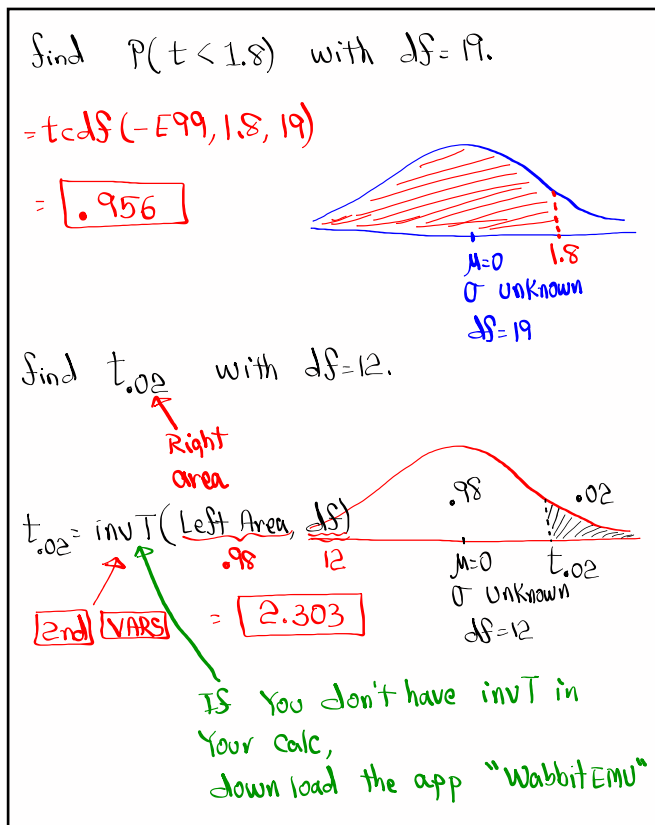 find P(t < 1.8) with df=19.
=tcdf(-E99, 1.8, 19)
= .956
μ=0
1.8
σ unknown
df=19
find t.02 with df=12.
Right
area
.98
.02
t.02 = invT(Left Area, df)
.98
12
μ=0
t.02
2nd VARS
= 2.303
σ unknown
df=12
If You don't have invT in
Your Calc,
download the app "WabbitEMU"